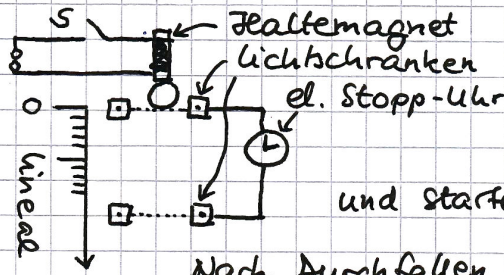 S
Haltemagnet
Lichtschranken
el. Stopp-Uhr
0
Lineal
und starte
Nach Durchfallen